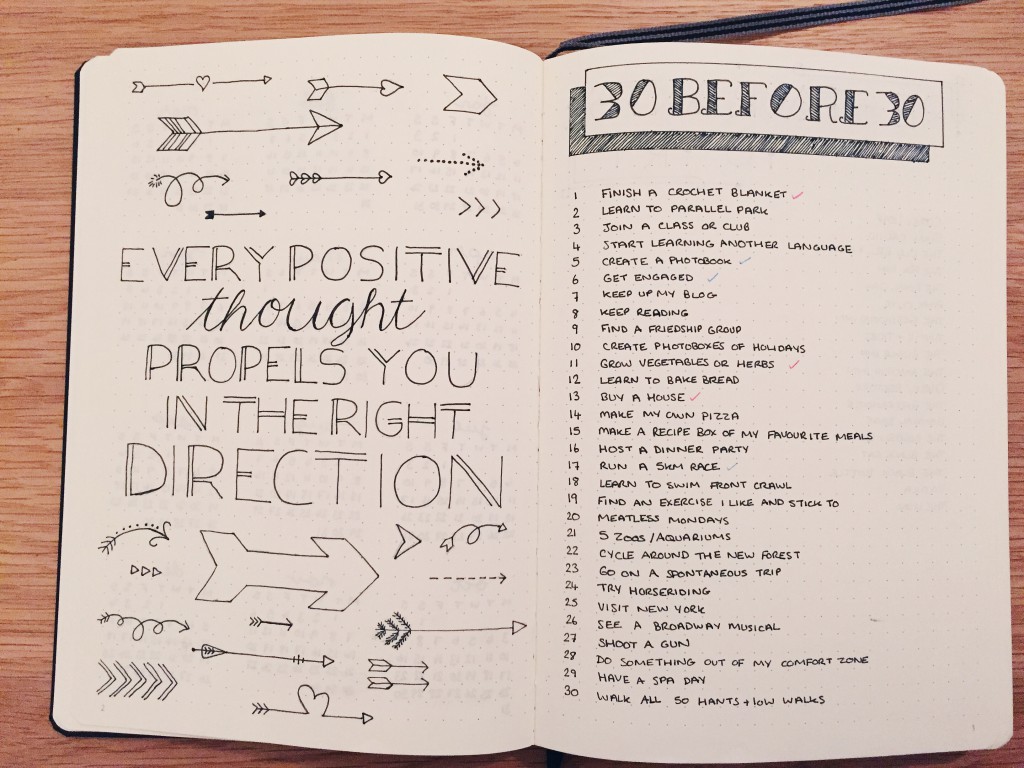 EVERY POSITIVE
thought
PROPELS YOU
IN THE RIGHT
DIRECTION
30 BEFORE 30
1 FINISH A CROCHET BLANKET ✓
2 LEARN TO PARALLEL PARK
3 JOIN A CLASS OR CLUB
4 START LEARNING ANOTHER LANGUAGE
5 CREATE A PHOTOBOOK ✓
6 GET ENGAGED ✓
7 KEEP UP MY BLOG
8 KEEP READING
9 FIND A FRIEDSHIP GROUP
10 CREATE PHOTOBOXES OF HOLIDAYS
11 GROW VEGETABLES OR HERBS ✓
12 LEARN TO BAKE BREAD
13 BUY A HOUSE ✓
14 MAKE MY OWN PIZZA
15 MAKE A RECIPE BOX OF MY FAVOURITE MEALS
16 HOST A DINNER PARTY
17 RUN A 5KM RACE ✓
18 LEARN TO SWIM FRONT CRAWL
19 FIND AN EXERCISE I LIKE AND STICK TO
20 MEATLESS MONDAYS
21 5 ZOOS/AQUARIUMS
22 CYCLE AROUND THE NEW FOREST
23 GO ON A SPONTANEOUS TRIP
24 TRY HORSERIDING
25 VISIT NEW YORK
26 SEE A BROADWAY MUSICAL
27 SHOOT A GUN
28 DO SOMETHING OUT OF MY COMFORT ZONE
29 HAVE A SPA DAY
30 WALK ALL 50 HANTS + IOW WALKS